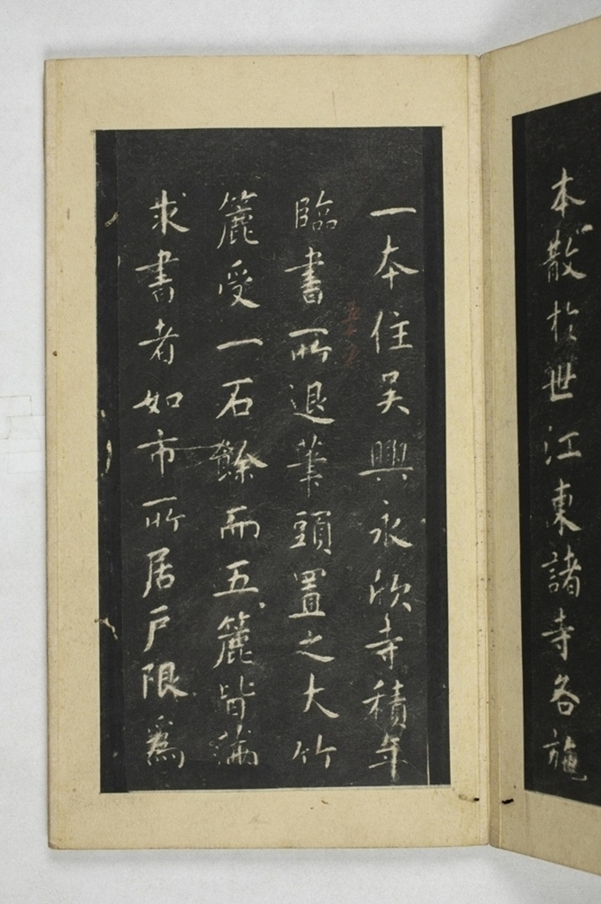 本散於世江東諸寺各施
一本住吳興永欣寺積年
臨書所退筆頭置之大竹
簏受一石餘而五簏皆滿
求書者如市所居戶限為